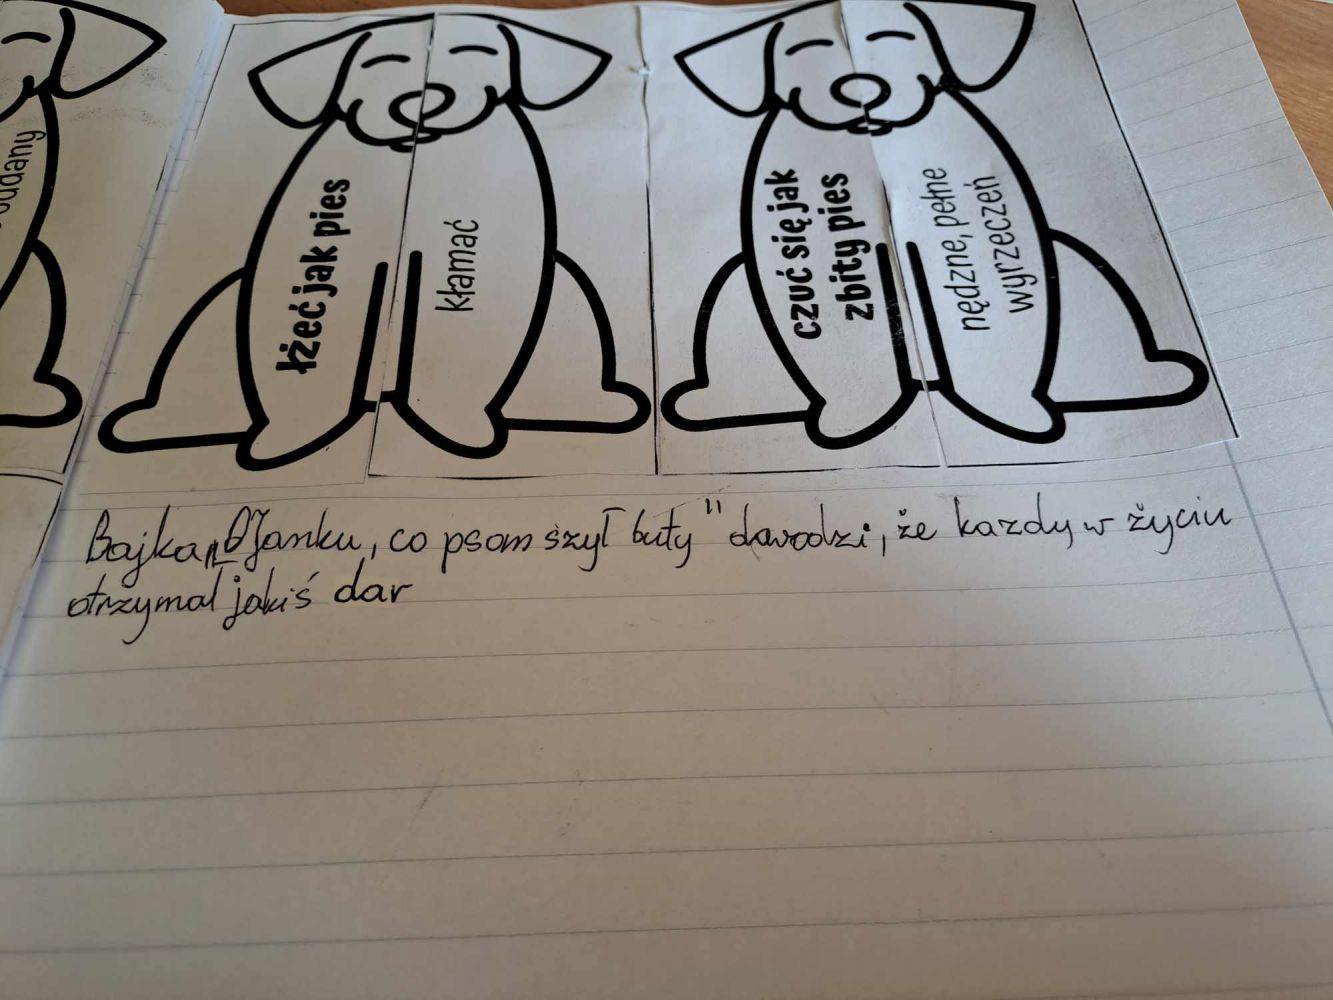 łżeć jak pies
kłamać
czuć się jak
zbity pies
nędzne, pełne
wyrzeczeń
Bajka „O Janku, co psom szył buty" dowodzi, że kazdy w życiu
otrzymał jakiś dar